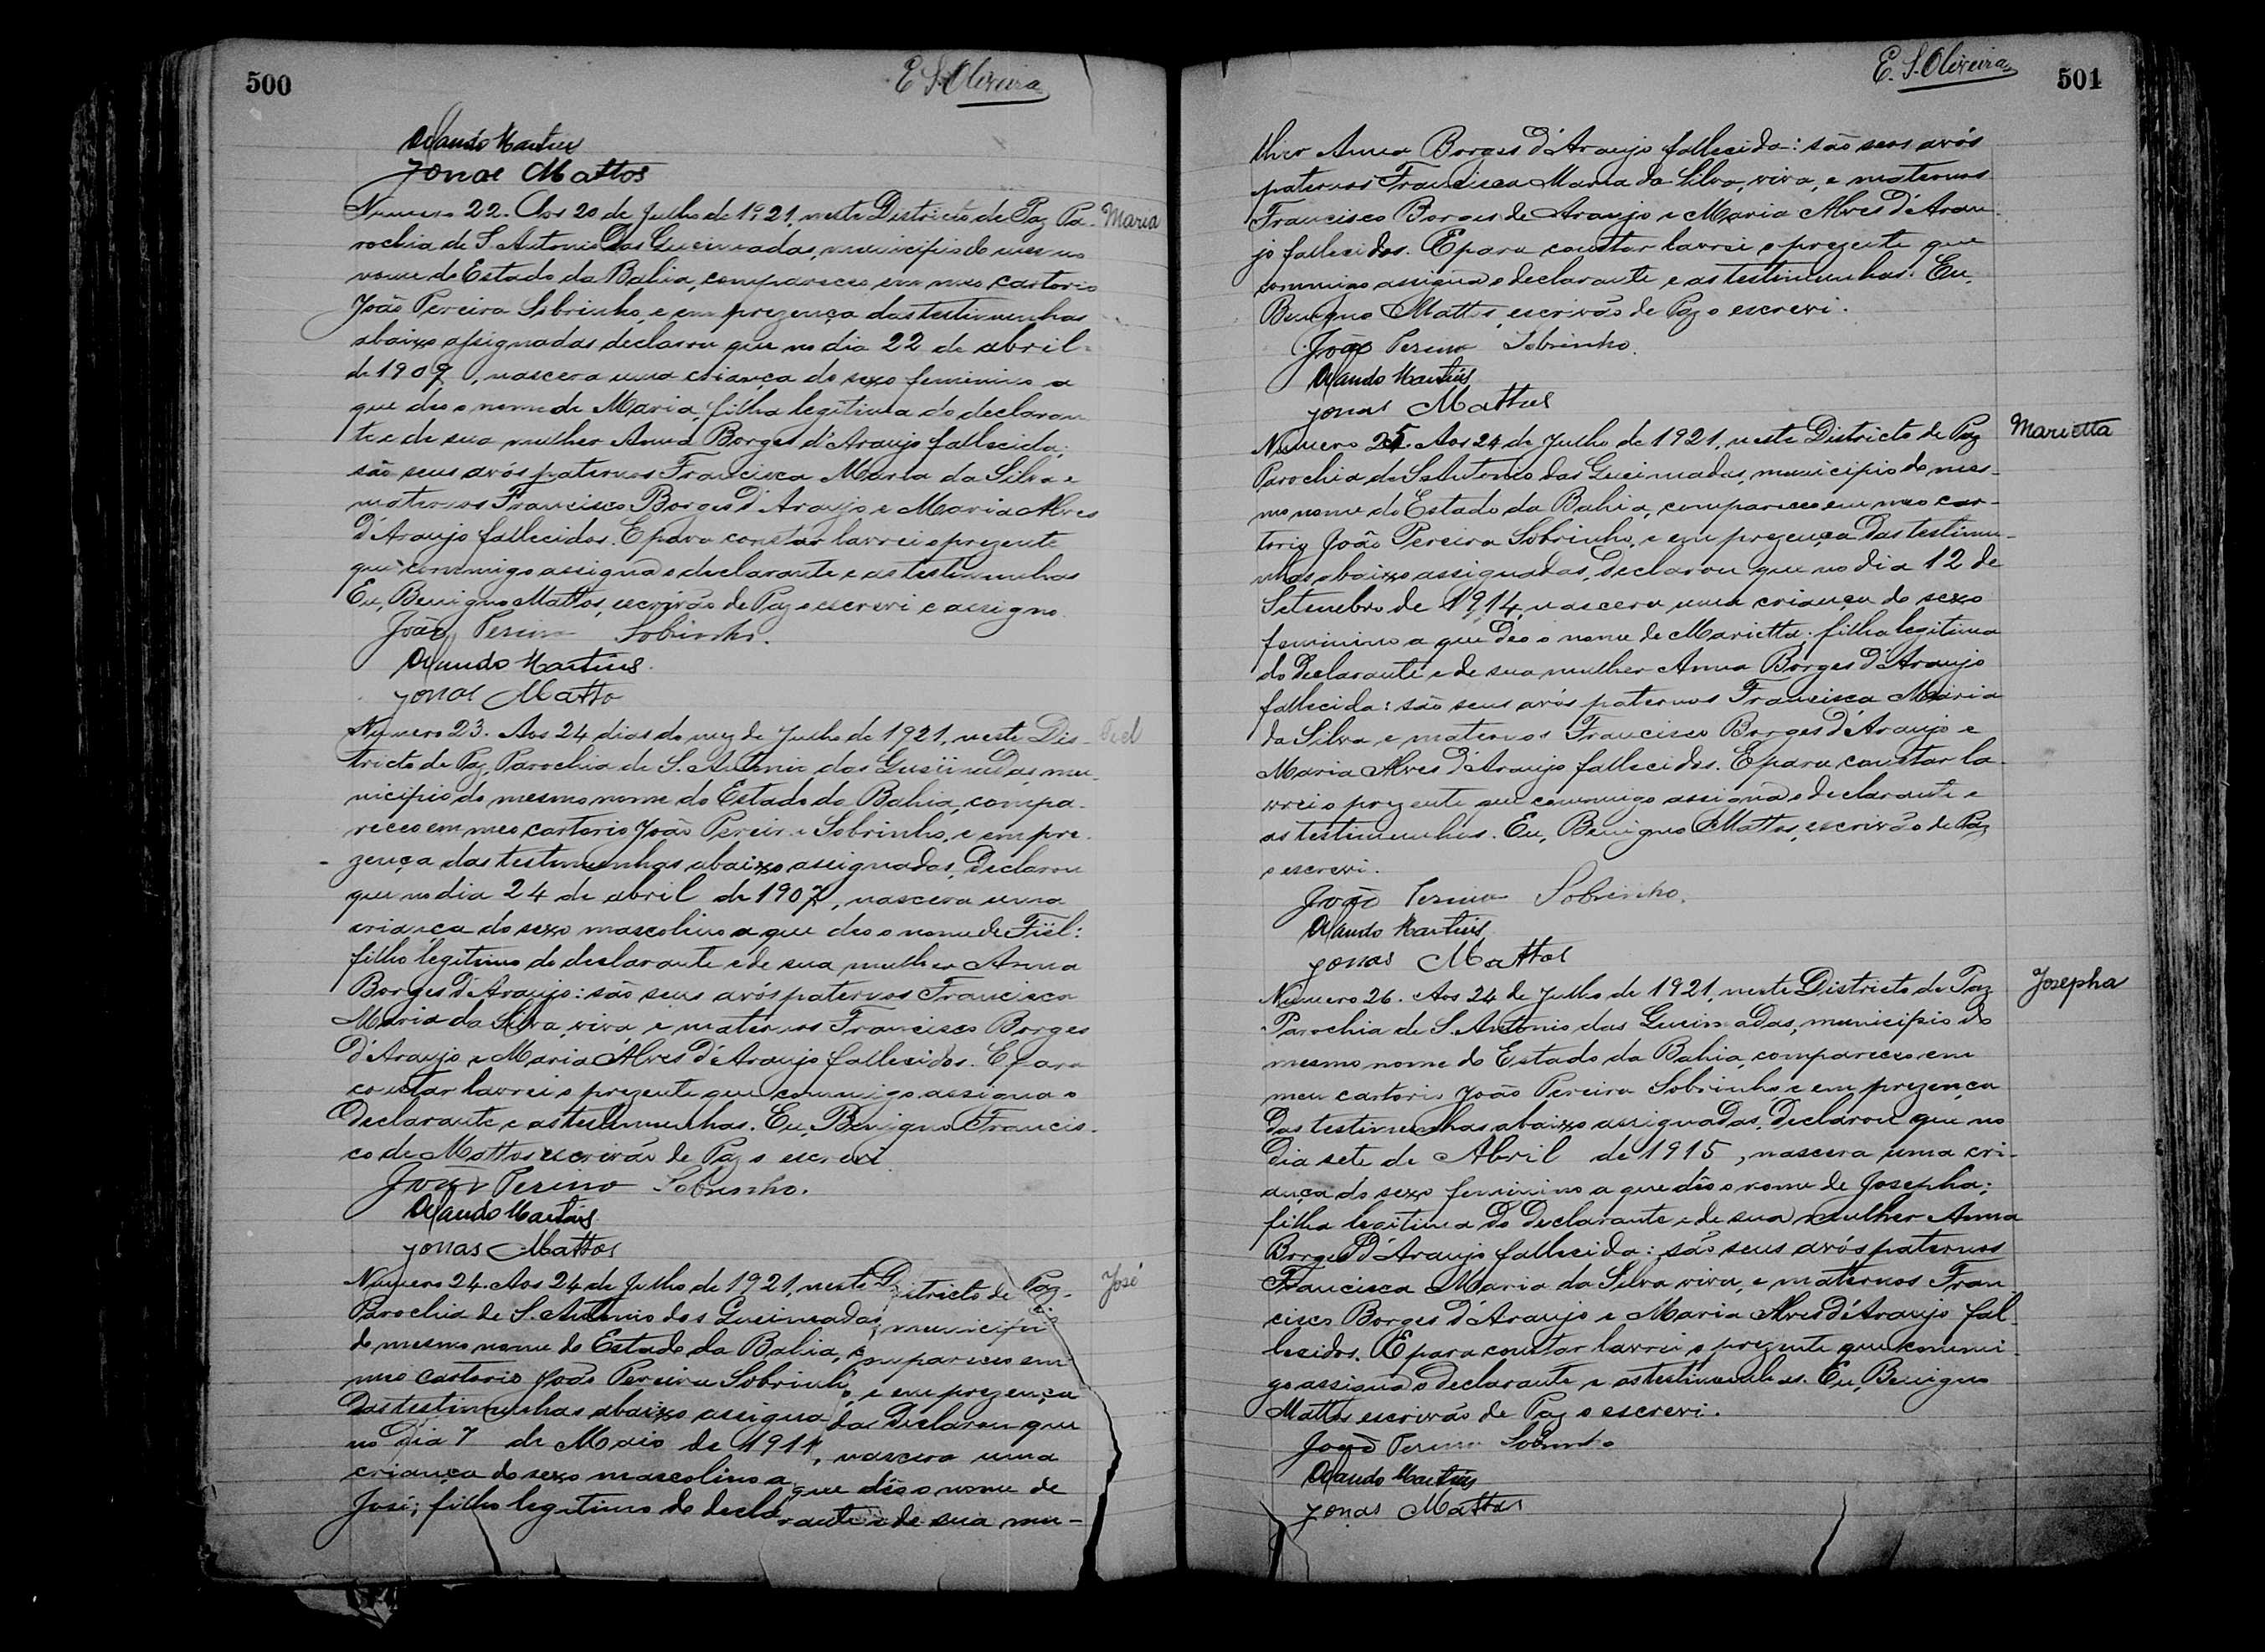 500
E. S. Oliveira
Orlando Martins
Jonas Mattos
Numero 22. Aos 20 de Julho de 1921, neste Districto de Paz Pa- Maria
rochia de S. Antonio das Queimadas, municipio do mesmo
nome do Estado da Bahia, compareceo em meo cartorio
João Pereira Sobrinho, e em prezença das testimunhas
abaixo assignadas declarou que no dia 22 de abril
de 1909, nascera uma criança do sexo feminino a
que deo o nome de Maria, filha legitima do declaran-
te e de sua mulher Anna Borges d'Araujo fallecida;
são seus avós paternos Francisca Maria da Silva e
maternos Francisco Borges d'Araujo e Maria Alves
d'Araujo fallecidos. E para constar lavrei o prezente
que commigo assigna o declarante e as testimunhas
Eu, Benigno Mattos, escrivão de Paz o escrevi e assigno.
João Pereira Sobrinho.
Orlando Martins.
Jonas Mattos
Numero 23. Aos 24 dias do mez de Julho de 1921, neste Dis- Fiel
tricto de Paz, Parochia de S. Antonio das Queimadas, mu-
nicipio do mesmo nome do Estado da Bahia, compa-
receo em meo cartorio João Pereira Sobrinho, e em pre-
zença das testimunhas abaixo assignadas, declarou
que no dia 24 de abril de 1907, nascera uma
criança do sexo mascolino a que deo o nome de Fiel:
filho legitimo do declarante e de sua mulher Anna
Borges d'Araujo: são seus avós paternos Francisca
Maria da Silva, viva, e maternos Francisco Borges
d'Araujo e Maria Alves d'Araujo fallecidos. E para
constar lavrei o prezente que commigo assigna o
declarante e as testimunhas. Eu, Benigno Francis-
co de Mattos escrivão de Paz o escrevi
João Pereira Sobrinho.
Orlando Martins
Jonas Mattos
Numero 24. Aos 24 de Julho de 1921, neste Districto de Paz- José
Parochia de S. Antonio das Queimadas, municipio
do mesmo nome do Estado da Bahia, compareceo em
meo cartorio João Pereira Sobrinho, e em prezença
das testimunhas abaixo assignadas declarou que
no dia 7 de Maio de 1911, nascera uma
criança do sexo mascolino a que deo o nome de
José; filho legitimo do declarante e de sua mu-
E. S. Oliveira
501
lher Anna Borges d'Araujo fallecida: são seos avós
paternos Francisca Maria da Silva, viva, e maternos
Francisco Borges de Araujo e Maria Alves d'Arau-
jo fallecidos. E para constar lavrei o prezente que
commigo assigna o declarante e as testimunhas. Eu,
Benigno Mattos, escrivão de Paz o escrevi.
João Pereira Sobrinho.
Orlando Martins
Jonas Mattos
Numero 25. Aos 24 de Julho de 1921, neste Districto de Paz Marietta
Parochia de S. Antonio das Queimadas, municipio do mes-
mo nome do Estado da Bahia, compareceo em meo car-
torio João Pereira Sobrinho, e em prezença das testimu-
nhas abaixo assignadas, declarou que no dia 12 de
Setembro de 1914, nascera uma criança do sexo
feminino a que deo o nome de Marietta; filha legitima
do declarante e de sua mulher Anna Borges d'Araujo
fallecida: são seus avós paternos Francisca Maria
da Silva e maternos Francisco Borges d'Araujo e
Maria Alves d'Araujo fallecidos. E para constar la-
vrei o prezente que commigo assigna o declarante e
as testimunhas. Eu, Benigno Mattos, escrivão de Paz
o escrevi.
João Pereira Sobrinho.
Orlando Martins
Jonas Mattos
Numero 26. Aos 24 de Julho de 1921, neste Districto de Paz Josepha
Parochia de S. Antonio das Queimadas, municipio do
mesmo nome do Estado da Bahia, compareceo em
meu cartorio João Pereira Sobrinho, e em prezença
das testimunhas abaixo assignadas, declarou que no
dia sete de Abril de 1915, nascera uma cri-
ança do sexo feminino a que deo o nome de Josepha;
filha legitima do declarante e de sua mulher Anna
Borges d'Araujo fallecida: são seus avós paternos
Francisca Maria da Silva viva, e maternos Fran-
cisco Borges d'Araujo e Maria Alves d'Araujo fal-
lecidos. E para constar lavrei o prezente que commi-
go assigna o declarante e as testimunhas. Eu, Benigno
Mattos escrivão de Paz o escrevi.
João Pereira Sobrinho
Orlando Martins
Jonas Mattos